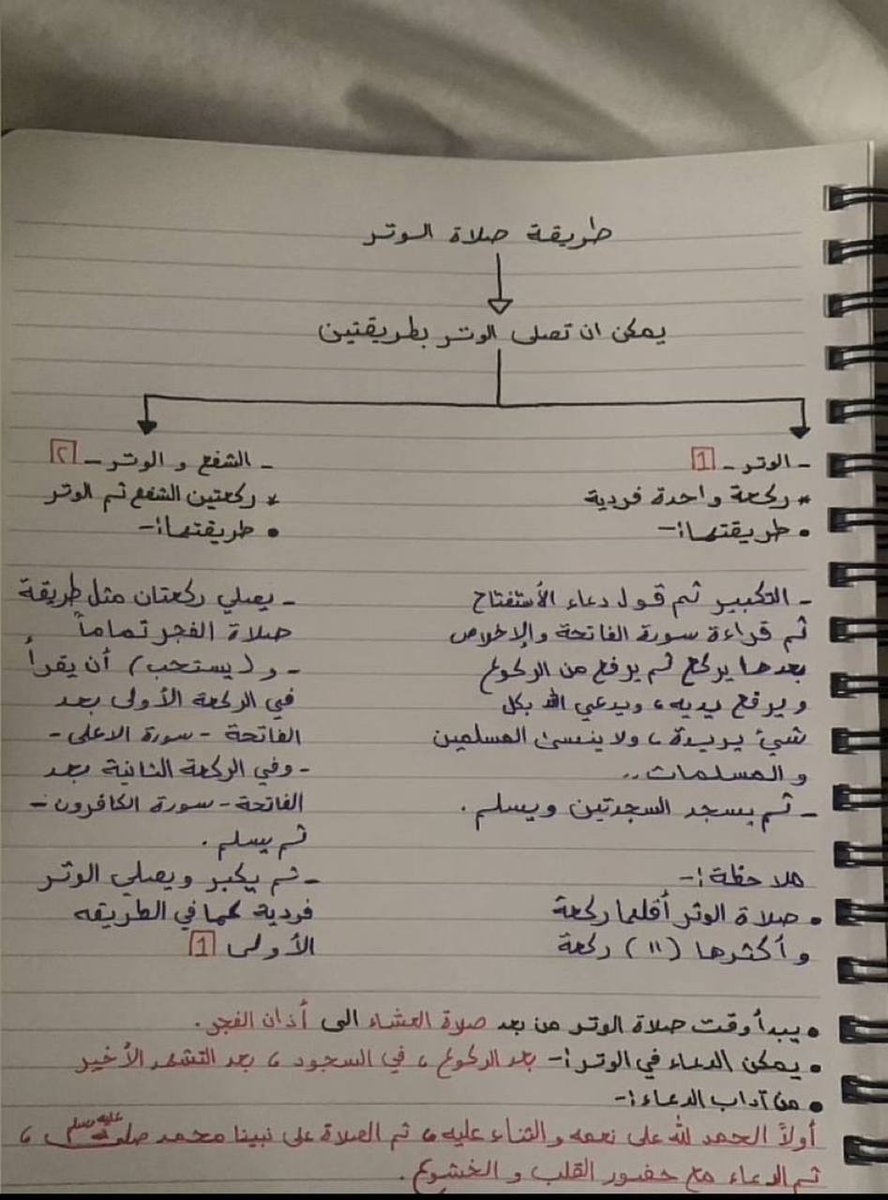 طريقة صلاة الوتر
يمكن ان تصلى الوتر بطريقتين
- الوتر - 1
* ركعة واحدة فردية
• طريقتها:-
- التكبير ثم قول دعاء الأستفتاح
ثم قراءة سورة الفاتحة والإخلاص
بعدها يركع ثم يرفع من الركوع
ويرفع يديه، ويدعي الله بكل
شيئ يريدة، ولا ينسى المسلمين
والمسلمات..
- ثم يسجد السجدتين ويسلم.
ملاحظة:-
• صلاة الوتر أقلها ركعة
وأكثرها (11) ركعة
- الشفع و الوتر - ٢
* ركعتين الشفع ثم الوتر
• طريقتها:-
- يصلي ركعتان مثل طريقة
صلاة الفجر تماماً
- و (يستحب) أن يقرأ
في الركعة الأولى بعد
الفاتحة - سورة الاعلى -
- وفي الركعة الثانية بعد
الفاتحة - سورة الكافرون -
ثم يسلم.
- ثم يكبر ويصلي الوتر
فردية كما في الطريقه
الأولى 1
• يبدأ وقت صلاة الوتر من بعد صلاة العشاء الى أذان الفجر.
• يمكن الدعاء في الوتر:- بعد الركوع، في السجود، بعد التشهد الأخير
• من آداب الدعاء:-
أولاً الحمد لله على نعمه والثناء عليه، ثم الصلاة على نبينا محمد صلى الله عليه وسلم،
ثم الدعاء مع حضور القلب و الخشوع.